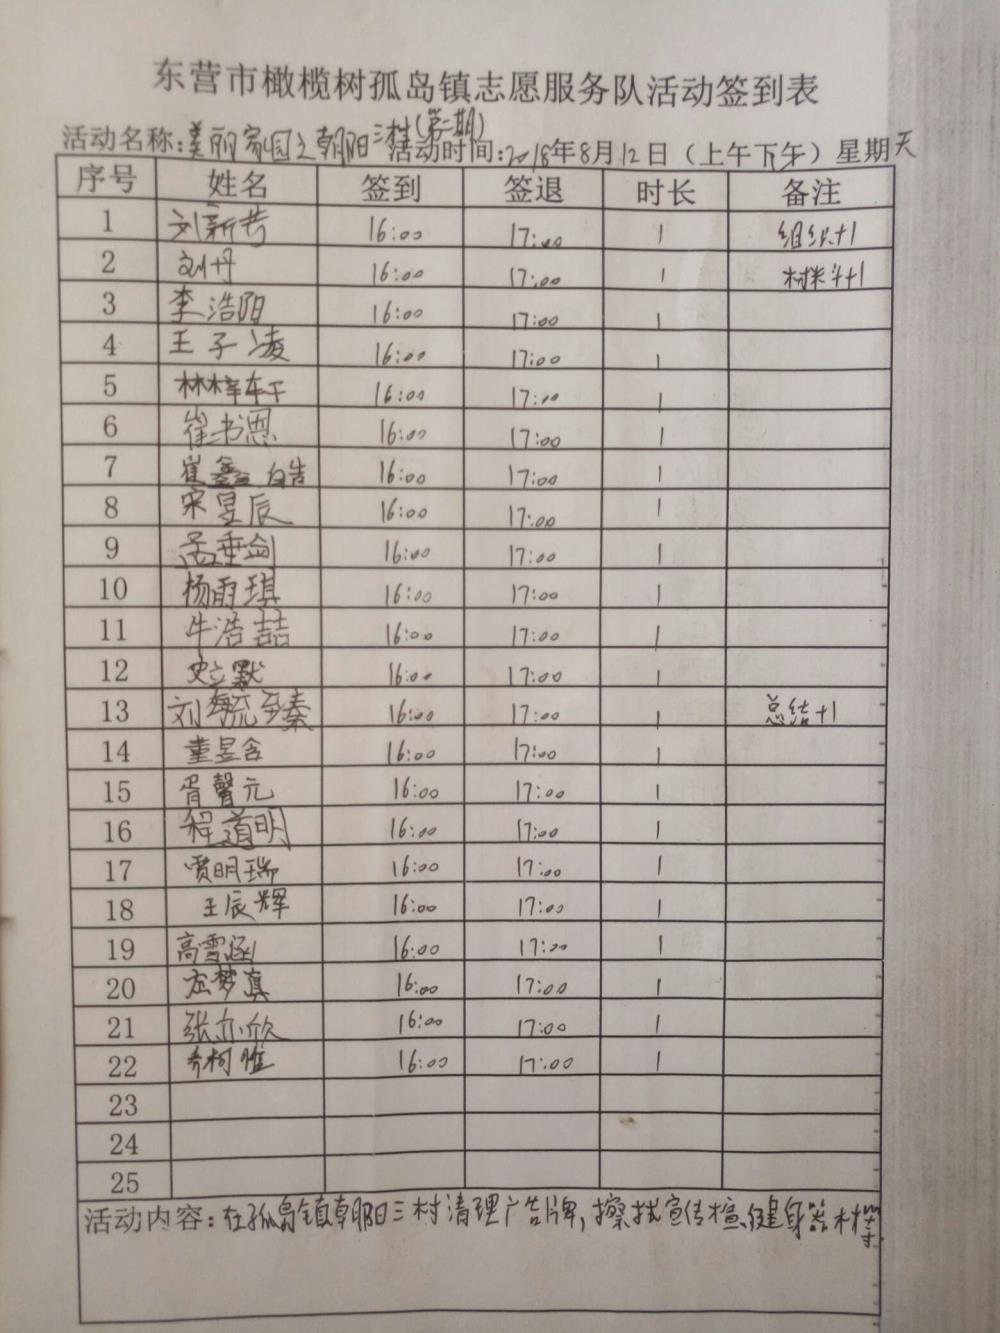 东营市橄榄树孤岛镇志愿服务队活动签到表
活动名称:美丽家园之朝阳三村(第二期) 活动时间:2018年8月12日（上午下午）星期天
序号 姓名 签到 签退 时长 备注
1 刘新芳 16:00 17:00 1 组织+1
2 刘丹 16:00 17:00 1 材料+1
3 李浩阳 16:00 17:00 1
4 王子凌 16:00 17:00 1
5 林梓轩 16:00 17:00 1
6 崔书恩 16:00 17:00 1
7 崔鑫皓 16:00 17:00 1
8 宋昱辰 16:00 17:00 1
9 孟垂剑 16:00 17:00 1
10 杨雨琪 16:00 17:00 1
11 牛浩喆 16:00 17:00 1
12 史立默 16:00 17:00 1
13 刘毓臻 16:00 17:00 1 总结+1
14 董昱含 16:00 17:00 1
15 胥馨元 16:00 17:00 1
16 程道明 16:00 17:00 1
17 贾明瑞 16:00 17:00 1
18 王辰辉 16:00 17:00 1
19 高雪涵 16:00 17:00 1
20 梦真 16:00 17:00 1
21 张亦欣 16:00 17:00 1
22 柯惟 16:00 17:00 1
23
24
25
活动内容:在孤岛镇朝阳三村清理广告牌,擦拭宣传栏、健身器材等